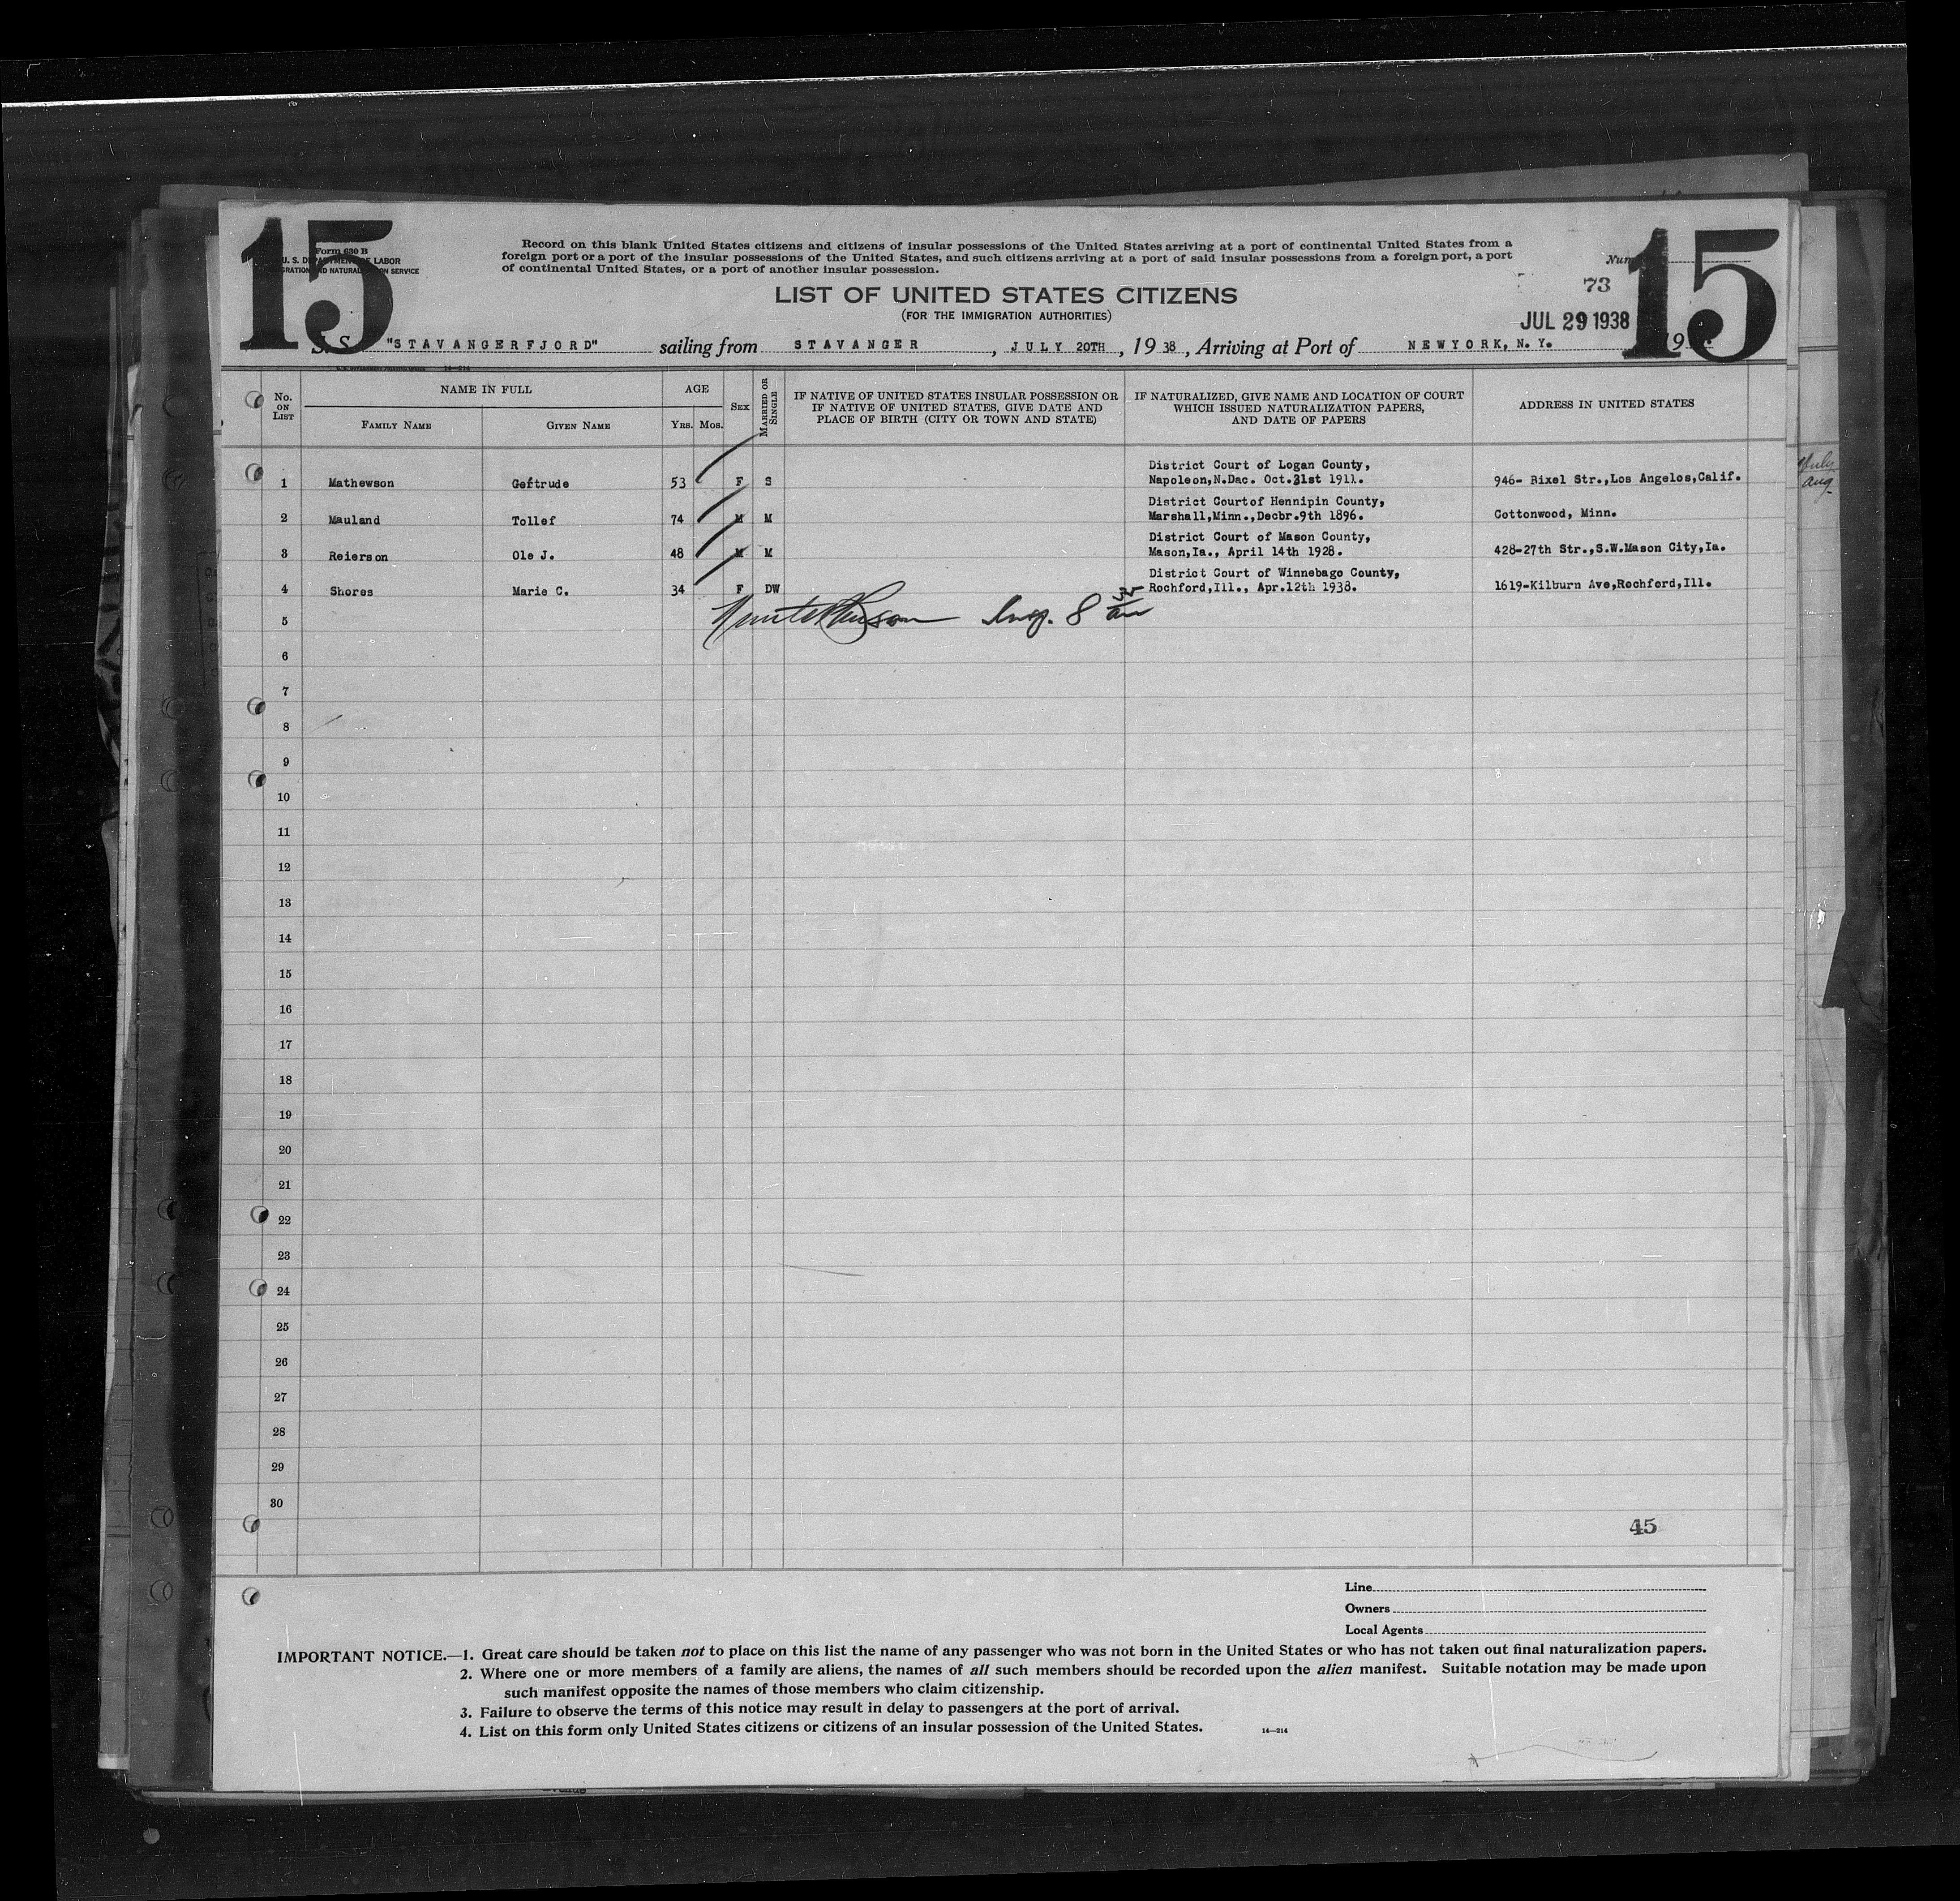 15
15
Form 630 B
U. S. DEPARTMENT OF LABOR
IMMIGRATION AND NATURALIZATION SERVICE
Record on this blank United States citizens and citizens of insular possessions of the United States arriving at a port of continental United States from a
foreign port or a port of the insular possessions of the United States, and such citizens arriving at a port of said insular possessions from a foreign port, a port
of continental United States, or a port of another insular possession.
73
LIST OF UNITED STATES CITIZENS
(FOR THE IMMIGRATION AUTHORITIES)
JUL 29 1938
S. S. "STAVANGERFJORD" sailing from STAVANGER, JULY 20TH, 1938, Arriving at Port of NEWYORK, N. Y. 19
14—214
No. ON LIST
NAME IN FULL
FAMILY NAME
GIVEN NAME
AGE
YRS. MOS.
SEX
MARRIED OR SINGLE
IF NATIVE OF UNITED STATES INSULAR POSSESSION OR
IF NATIVE OF UNITED STATES, GIVE DATE AND
PLACE OF BIRTH (CITY OR TOWN AND STATE)
IF NATURALIZED, GIVE NAME AND LOCATION OF COURT
WHICH ISSUED NATURALIZATION PAPERS,
AND DATE OF PAPERS
ADDRESS IN UNITED STATES
District Court of Logan County,
1 Mathewson Gertrude 53 F S Napoleon,N.Dac. Oct.31st 1911. 946- Bixel Str.,Los Angelos,Calif.
District Courtof Hennipin County,
2 Mauland Tollef 74 M M Marshall,Minn.,Decbr.9th 1896. Cottonwood, Minn.
District Court of Mason County,
3 Reierson Ole J. 48 M M Mason,Ia., April 14th 1928. 428-27th Str.,S.W.Mason City,Ia.
District Court of Winnebago County,
4 Shores Marie C. 34 F DW Rochford,Ill., Apr.12th 1938. 1619-Kilburn Ave,Rochford,Ill.
5
6
7
8
9
10
11
12
13
14
15
16
17
18
19
20
21
22
23
24
25
26
27
28
29
30
45
Line
Owners
Local Agents
IMPORTANT NOTICE.—1. Great care should be taken not to place on this list the name of any passenger who was not born in the United States or who has not taken out final naturalization papers.
2. Where one or more members of a family are aliens, the names of all such members should be recorded upon the alien manifest. Suitable notation may be made upon
such manifest opposite the names of those members who claim citizenship.
3. Failure to observe the terms of this notice may result in delay to passengers at the port of arrival.
4. List on this form only United States citizens or citizens of an insular possession of the United States. 14—214
July
Aug